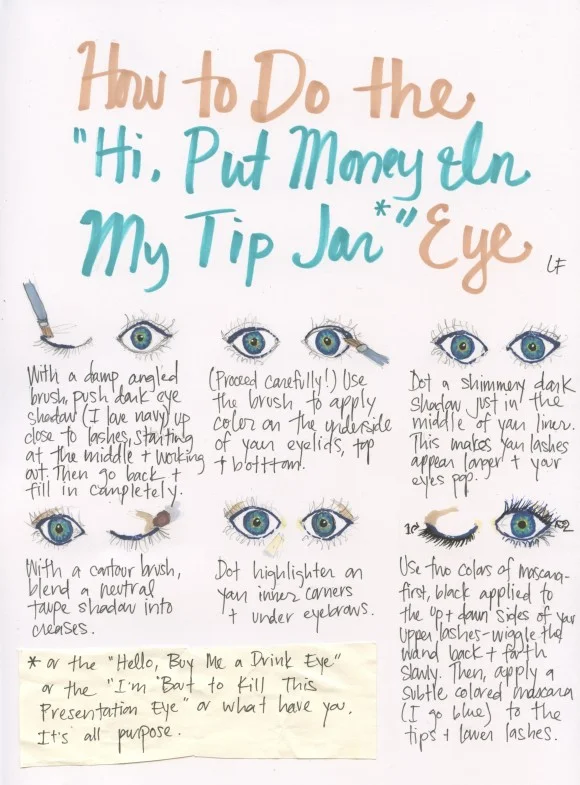 How to Do the
"Hi, Put Money In
My Tip Jar*" Eye
LF
With a damp angled
brush, push dark eye
shadow (I love navy) up
close to lashes, starting
at the middle + working
out. Then go back +
fill in completely.
(Proceed carefully!) Use
the brush to apply
color on the underside
of your eyelids, top
+ bottom.
Dot a shimmery dark
shadow just in the
middle of your liner.
This makes your lashes
appear larger + your
eyes pop.
With a contour brush,
blend a neutral
taupe shadow into
creases.
Dot highlighter on
your inner corners
+ under eyebrows.
1
2
Use two colors of mascara-
first, black applied to
the up + down sides of your
upper lashes - wiggle the
wand back + forth
slowly. Then, apply a
subtle colored mascara
(I go blue) to the
tips + lower lashes.
* or the "Hello, Buy Me a Drink Eye"
or the "I'm 'Bout to Kill This
Presentation Eye" or what have you.
It's all purpose.